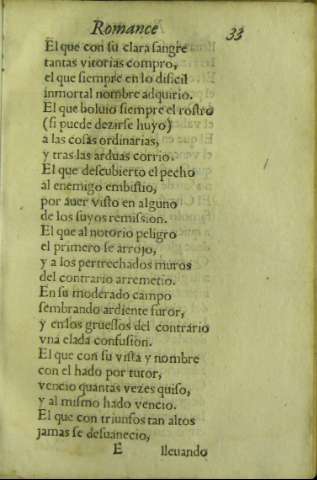 Romance 33
El que con su clara sangre
tantas vitorias compro,
el que siempre en lo dificil
inmortal nombre adquirio.
El que boluio siempre el rostro
(si puede dezirse huyo)
a las cosas ordinarias,
y tras las arduas corrio.
El que descubierto el pecho
al enemigo embistio,
por auer visto en alguno
de los suyos remission.
El que al notorio peligro
el primero se arrojo,
y a los pertrechados muros
del contrario arremetio.
En su moderado campo
sembrando ardiente furor,
y en los gruessos del contrario
vna elada confusion.
El que con su vista y nombre
con el hado por tutor,
vencio quantas vezes quiso,
y al mismo hado vencio.
El que con triunfos tan altos
jamas se desuanecio,
E lleuando